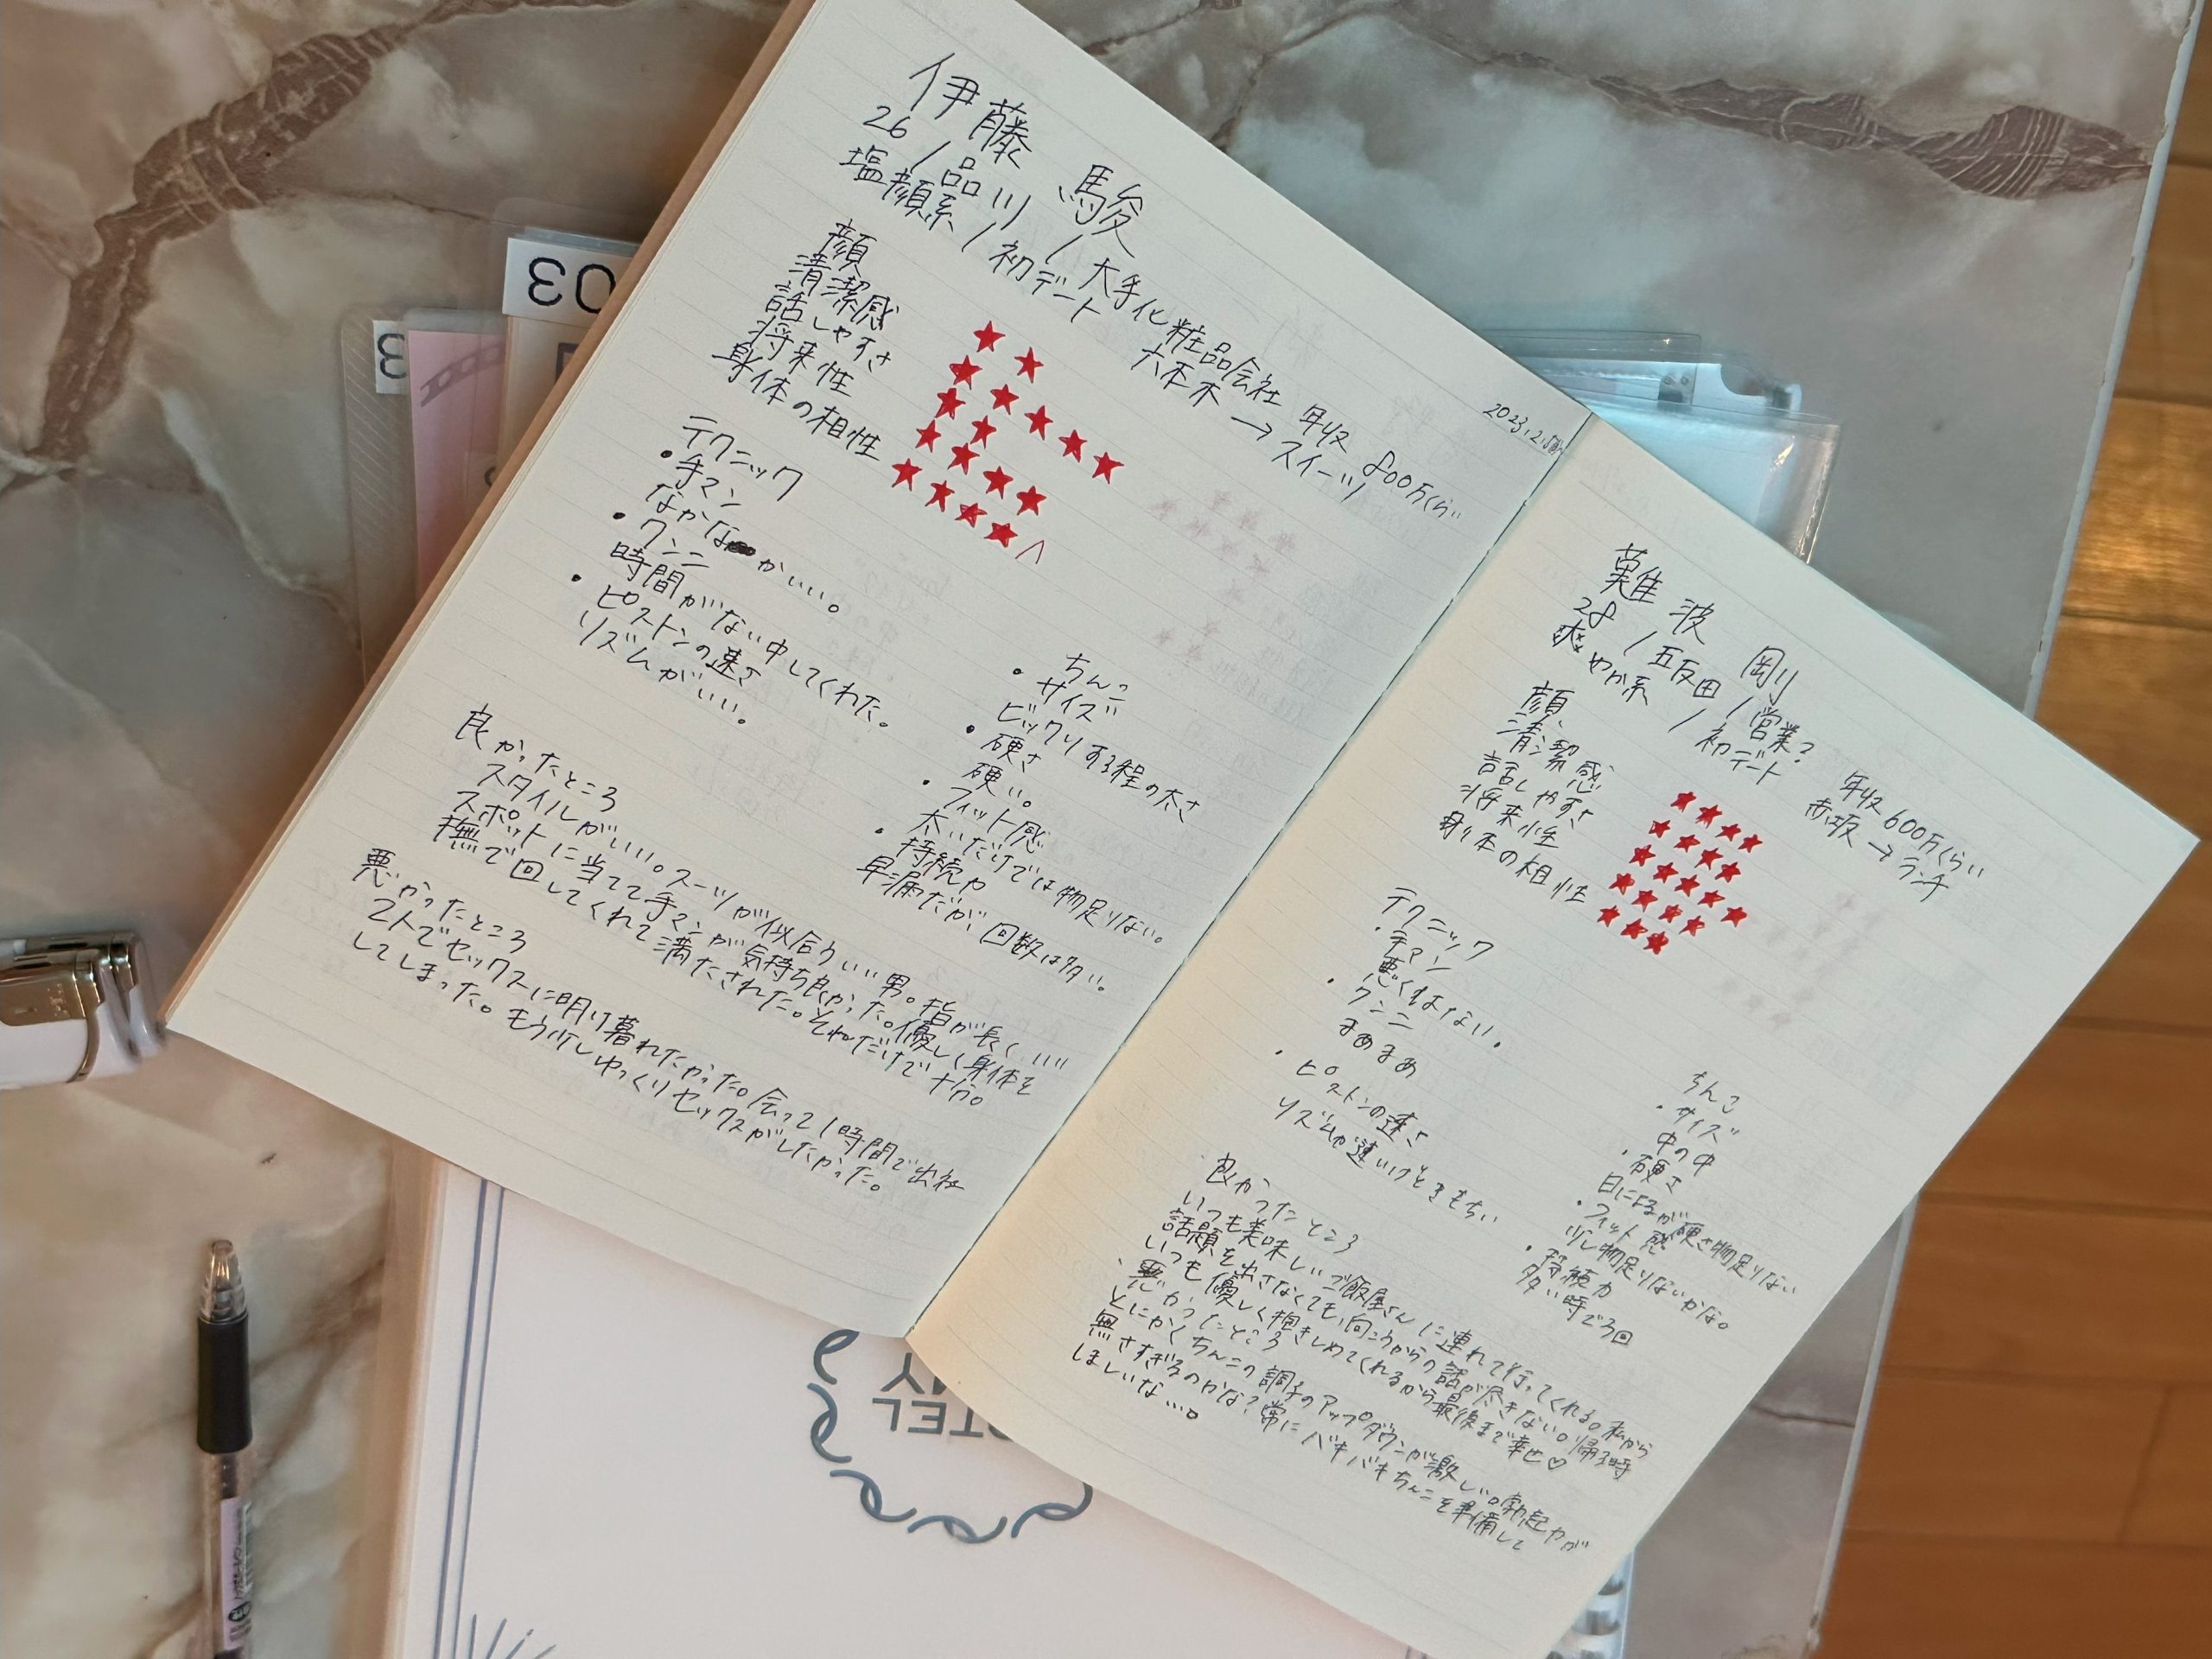 伊藤 駿
26 / 品川 / 大手化粧品会社 年収 800万くらい
塩顔系 / 初デート 六本木 → スイーツ
2023.12.
顔 ★★
清潔感 ★★★★★
話しやすさ ★★
将来性 ★★★★
身体の相性 ★★★★
テクニック
・手マン
なかなかいい。
・クンニ
時間がない中してくれた。
・ピストンの速さ
リズムがいい。
ちんこ
・サイズ
ビックリする程の太さ
・硬さ
硬い。
・フィット感
太いだけでは物足りない。
・持続力
早漏だが、回数は多い。
良かったところ
スタイルがいい。スーツが似合ういい男。指が長くいい
スポットに当てて手マンが気持ち良かった。優しく身体を
撫で回してくれて満たされた。それだけで十分。
悪かったところ
2人でセックスに明け暮れたかった。会って1時間で出社
してしまった。もう少しゆっくりセックスがしたかった。
難波 剛
28 / 五反田 / 営業? 年収600万くらい
爽やか系 / 初デート 赤坂 → ランチ
顔 ★★★★
清潔感 ★★★★
話しやすさ ★★★★
将来性 ★★★★★
身体の相性
★★★★
★★★
テクニック
・手マン
悪くはない。
・クンニ
まあまあ
・ピストンの速さ
リズムが速いけどきもちい
ちんこ
・サイズ
中の中
・硬さ
日によるが硬さ物足りない
・フィット感
少し物足りないかな。
・持続力
多い時で3回
良かったところ
いつも美味しいご飯屋さんに連れて行ってくれる。私から
話題を出さなくても、向こうからの話が尽きない。帰る時
いつも優しく抱きしめてくれるから最後まで幸せ♡
悪かったところ
とにかくちんこの調子のアップダウンが激しい。勃起力が
無さすぎるのかな?常にバキバキちんこを準備して
ほしいな…。
03
3